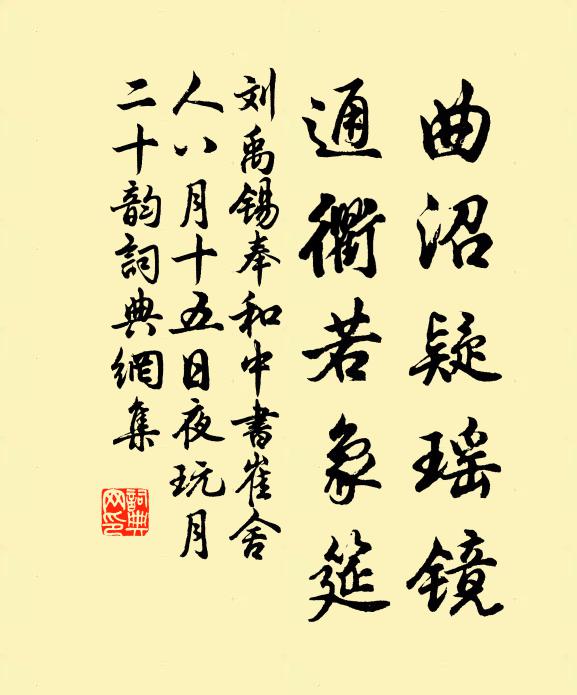 曲沼疑瑶镜
通衢若象筵
刘禹锡奉和中书崔舍
人八月十五日夜玩月
二十韵詞典網集
詞典
网印